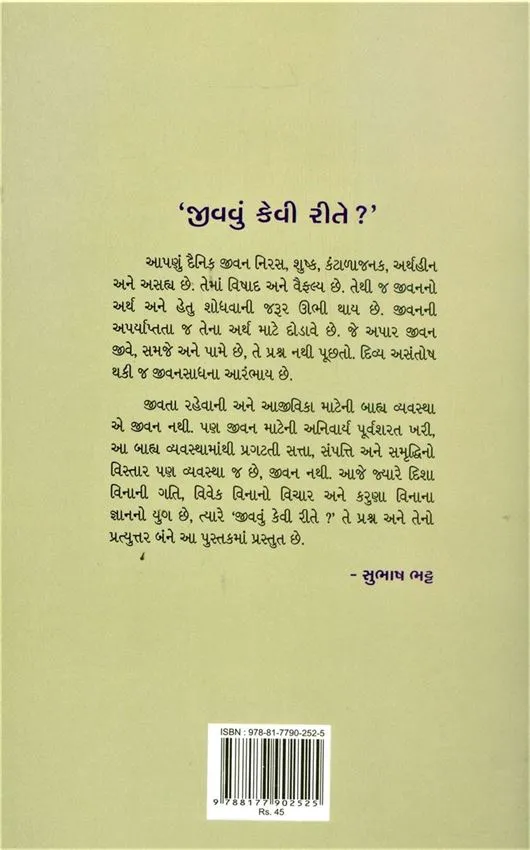 ‘જીવવું કેવી રીતે ?’
આપણું દૈનિક જીવન નિરસ, શુષ્ક, કંટાળાજનક, અર્થહીન
અને અસહ્ય છે. તેમાં વિષાદ અને વૈફલ્ય છે. તેથી જ જીવનનો
અર્થ અને હેતુ શોધવાની જરૂર ઊભી થાય છે. જીવનની
અપર્યાપ્તતા જ તેના અર્થ માટે દોડાવે છે. જે અપાર જીવન
જીવે, સમજે અને પામે છે, તે પ્રશ્ન નથી પૂછતો. દિવ્ય અસંતોષ
થકી જ જીવનસાધના આરંભાય છે.
જીવતા રહેવાની અને આજીવિકા માટેની બાહ્ય વ્યવસ્થા
એ જીવન નથી. પણ જીવન માટેની અનિવાર્ય પૂર્વશરત ખરી,
આ બાહ્ય વ્યવસ્થામાંથી પ્રગટતી સત્તા, સંપત્તિ અને સમૃદ્ધિનો
વિસ્તાર પણ વ્યવસ્થા જ છે, જીવન નથી. આજે જ્યારે દિશા
વિનાની ગતિ, વિવેક વિનાનો વિચાર અને કરુણા વિનાના
જ્ઞાનનો યુગ છે, ત્યારે ‘જીવવું કેવી રીતે ?’ તે પ્રશ્ન અને તેનો
પ્રત્યુત્તર બંને આ પુસ્તકમાં પ્રસ્તુત છે.
- સુભાષ ભટ્ટ
ISBN : 978-81-7790-252-5
9 788177 902525
Rs. 45